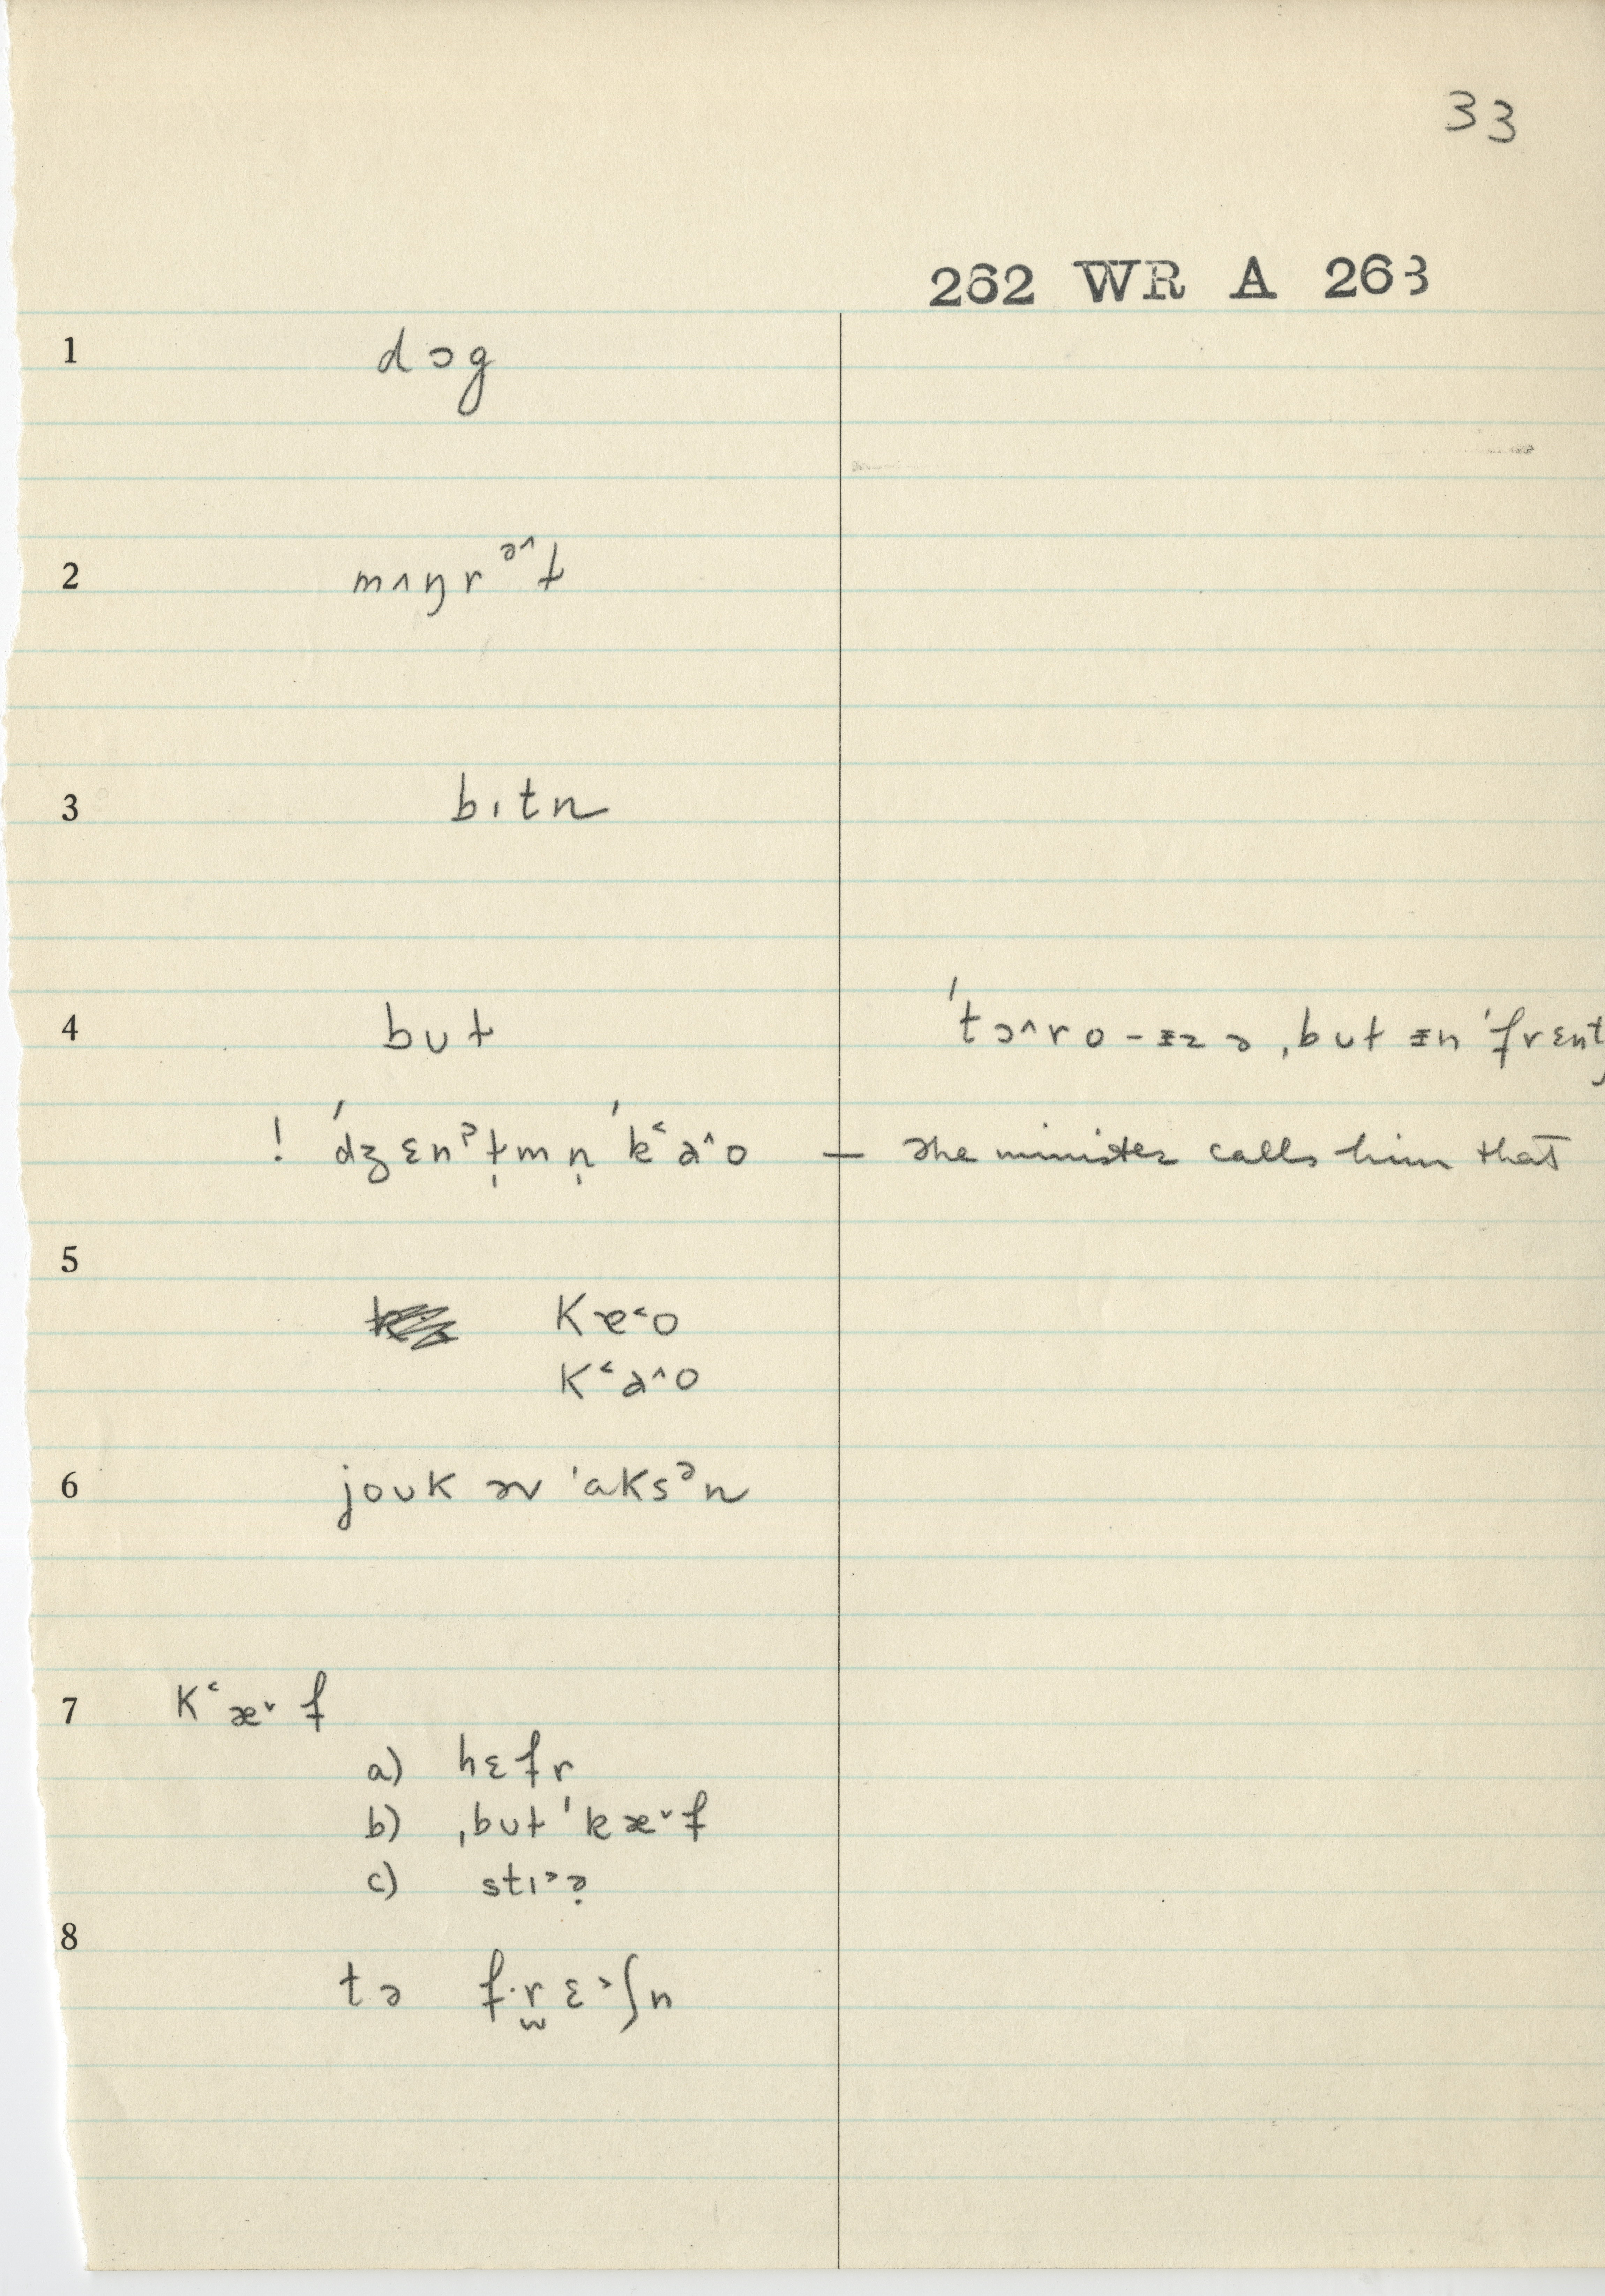 33
262 WR A 263
1 dɔg
2 mʌŋrᵊ^t
3 bɪtn
4 bʊt 'tɔ^ro-ɪz ə ˌbʊt ɪn 'frɛnt
! 'dʒɛnˀt̩mn̩ 'k˂a^o — The minister calls him that
5
Kæ˂o
K˂a^o
6 joʊk əv 'aksᵊn
7 K˂æ˅f
a) hɛfr
b) ˌbʊt 'kæ˅f
c) stɪ˃ə̣
8
tə f·r̫ɛ˃ʃn